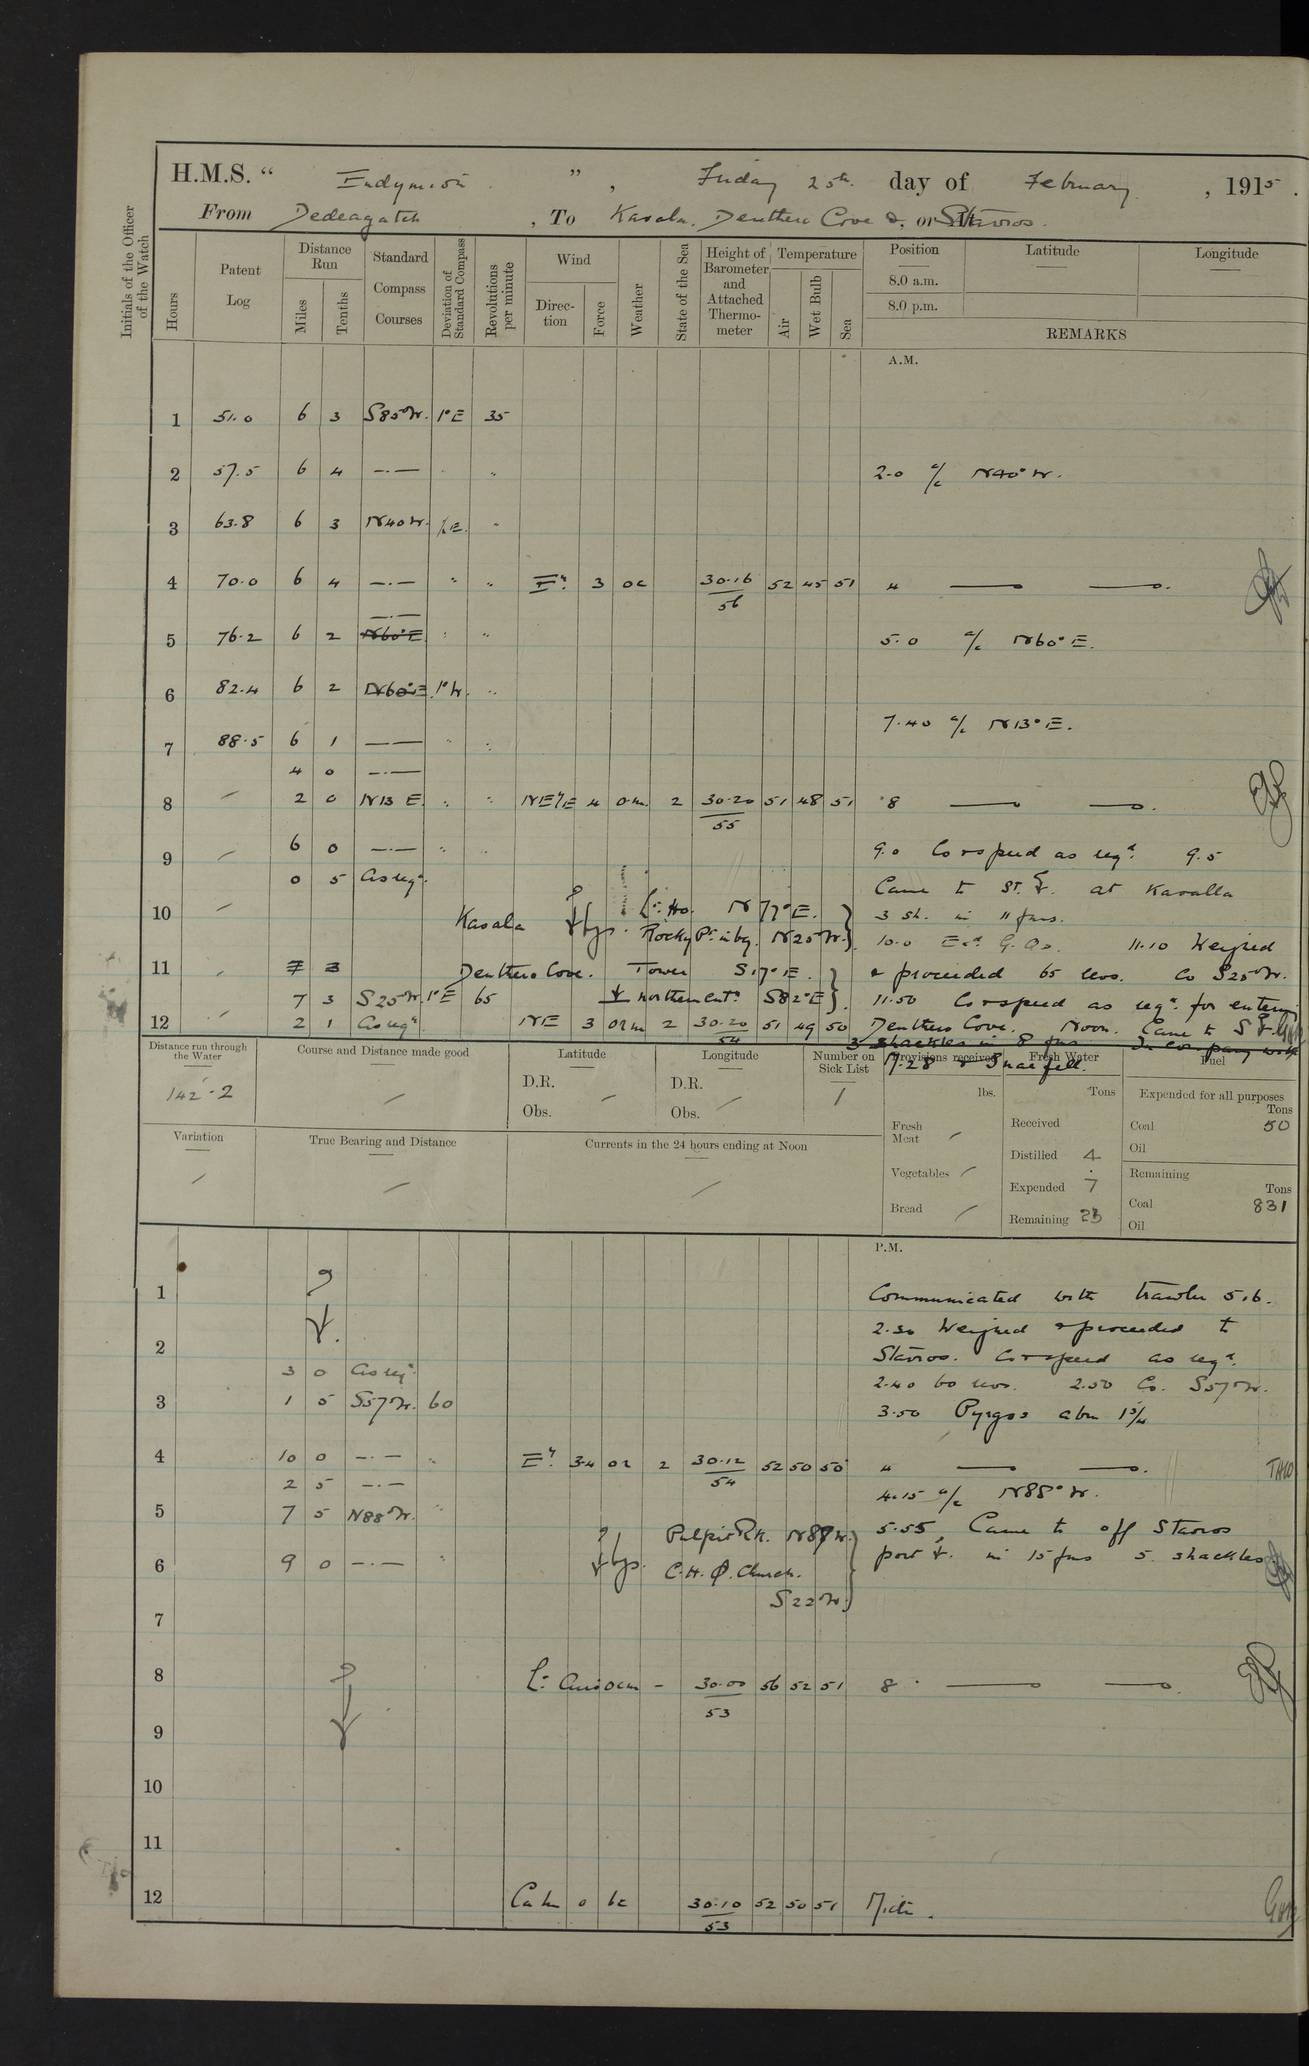 H.M.S. “ Endymion ” , Friday 25th day of February , 1915 .
From Dedeagatch , To Kavala. Deuthero Cove &, or Stavros.
Initials of the Officer of the Watch
Hours
Patent Log
Distance Run
Miles
Tenths
Standard Compass Courses
Deviation of Standard Compass
Revolutions per minute
Wind
Direction
Force
Weather
State of the Sea
Height of Barometer and Attached Thermometer
Temperature
Air
Wet Bulb
Sea
Position
8.0 a.m.
8.0 p.m.
Latitude
Longitude
REMARKS
A.M.
1 51.0 6 3 S85°W. 1°E 35
2 57.5 6 4 —·— " 2.0 a/c N40°W.
3 63.8 6 3 N40W. 1/2E. "
4 70.0 6 4 —·— " " E'ly. 3 oc 30.16 52 45 51 4 —— ——.
56
—·—
5 76.2 6 2 N60°E " " 5.0 a/c N60°E.
6 82.4 6 2 N60°E 1°W. "
7.40 a/c N13°E.
7 88.5 6 1 —— " "
4 0 —·—
8 2 0 N13 E. " " NE'/E 4 o.m. 2 30.20 51 48 51 8 —— ——.
55
9 6 0 —·— " " 9.0 Co & speed as reqd. 9.5
0 5 As reqd. Came to St. at Kavalla
10 Kavala bgs. Lt. Ho. N77°E. 3 sh. in 11 fms.
Rocky Pt. in bg. N25°W. 10.0 11.10 Weighed
11 7 3 Deuthero Cove. Tower S17°E. & proceeded 65 revs. Co S25°W.
7 3 S25°W. 1°E 65 northern entce S82°E. 11.50 Co & speed as reqd. for entering
12 2 1 As reqd NE 3 2 30.20 51 49 50 Deuthero Cove. Noon. Came to S
54 3 shackles in 8 fms In company with
M.28 & Snaefell.
Distance run through the Water
142.2
Course and Distance made good
Latitude
D.R.
Obs.
Longitude
D.R.
Obs.
Number on Sick List
1
Provisions received
lbs.
Fresh Meat
Vegetables
Bread
Fresh Water
Tons
Received
Distilled 4
Expended 7
Remaining 23
Fuel
Expended for all purposes
Tons
Coal 50
Oil
Remaining
Tons
Coal 831
Oil
Variation
True Bearing and Distance
Currents in the 24 hours ending at Noon
P.M.
1 Communicated with trawler 516.
2.30 Weighed & proceeded to
2 Stavros. Co & speed as reqd.
3 0 As reqd 2.40 60 revs. 2.50 Co. S57°W.
3 1 5 S57°W. 60 3.50 Pyrgos abm 1 3/4
4 10 0 —·— " E'ly. 3.4 2 30.12 52 50 50 4 —— ——.
54
2 5 —·— 4.15 a/c N88°W.
5 7 5 N88°W. "
bgs. Pulpit Rk. N89W. 5.55, Came to off Stavros
6 9 0 —·— " C.H. Church. port in 15 fms 5 shackles
S22W.
7
8 Lt. Airs 30.00 56 52 51 8 —— ——.
53
9
10
11
12 Calm 0 bc 30.10 52 50 51 Midt.
53